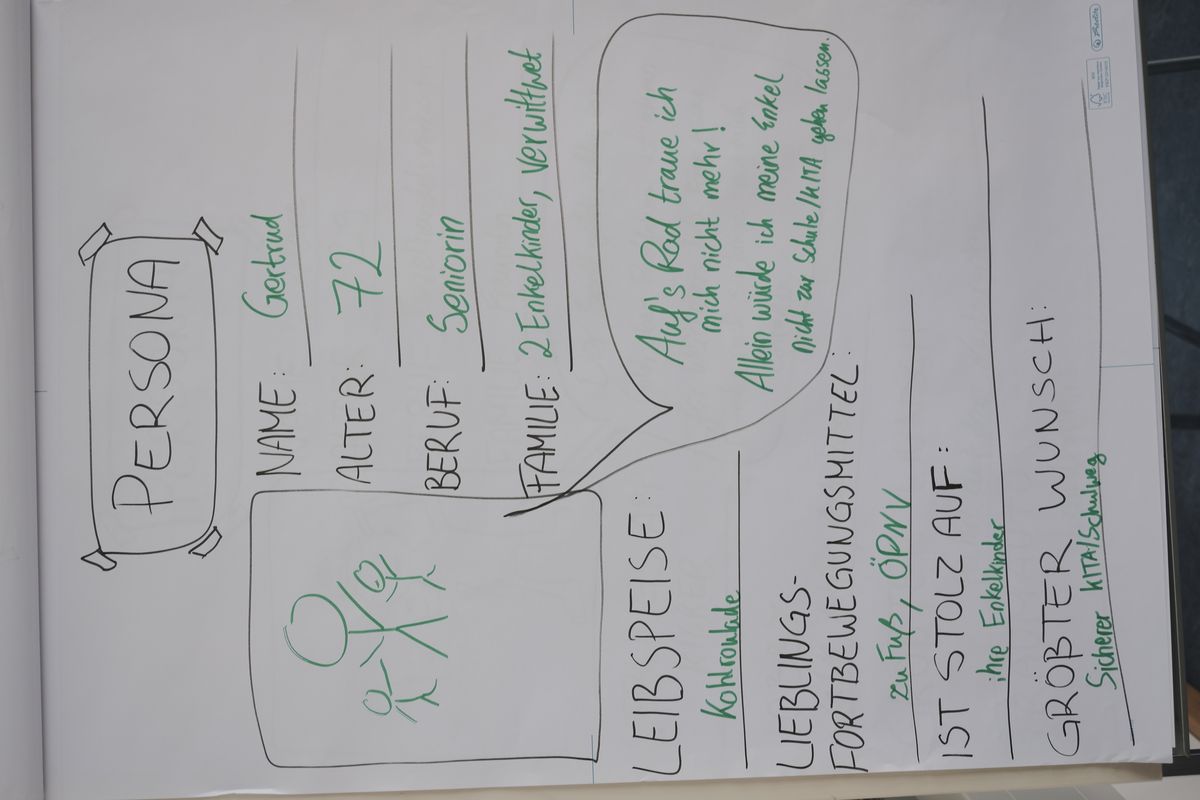 PERSONA
NAME: Gertrud
ALTER: 72
BERUF: Seniorin
FAMILIE: 2 Enkelkinder, verwittwet
Auf's Rad traue ich
mich nicht mehr!
Allein würde ich meine Enkel
nicht zur Schule/KITA gehen lassen.
LEIBSPEISE:
Kohlroulade
LIEBLINGS-
FORTBEWEGUNGSMITTEL:
zu Fuß, ÖPNV
IST STOLZ AUF:
ihre Enkelkinder
GRÖßTER WUNSCH:
Sicherer KITA/Schulweg